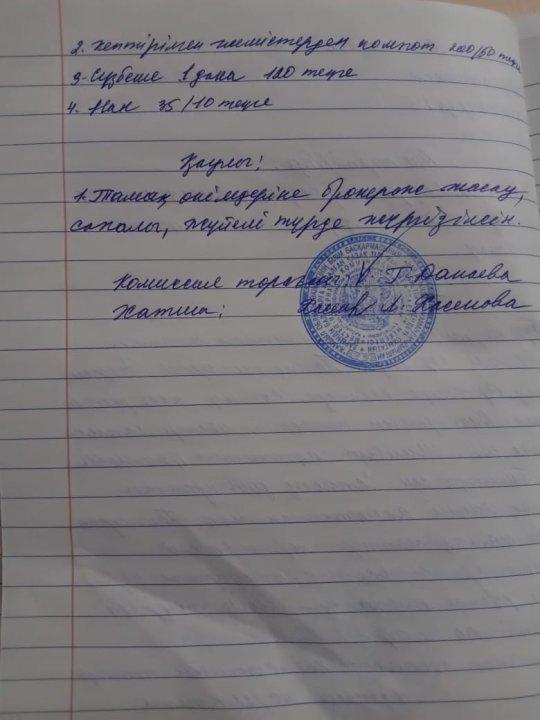 2. Кептірілген жемістерден компот 200/60 теңге
3. Сүзбеше 1 дана 120 теңге
4. Нан 35/10 теңге
Қаулы:
1. Тамақ өнімдеріне бракераж жасау,
сапалы, жүйелі түрде жүргізілсін.
Комиссия төрағасы: Г. Данаева
Хатшы: Л. Хасенова